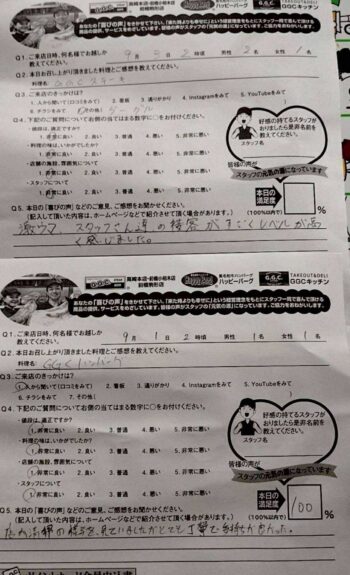 高崎本店・前橋小相木店
前橋駒形店
ハッピーバーグ
G.G.C.
TAKEOUT&DELI
GGCキッチン
あなたの「喜びの声」をきかせて下さい。「来た時よりも幸せに」という経営理念をもとにスタッフ一同で喜んで頂ける
商品の提供、サービスをめざしています。皆様の声がスタッフの「元気の源」になります。ご協力をおねがいします。
Q1. ご来店日時、何名様でお越しか
教えてください。
9月 日 2時頃 男性 2名 女性 1名
Q2. 本日お召し上がり頂きました料理とご感想を教えてください。
料理名
Q3. ご来店のきっかけは?
1. 人から聞いて(口コミをみて) 2. 看板 3. 通りがかり 4. Instagramをみて 5. YouTubeをみて
6. チラシをみて グーグル
Q4. 下記のご質問について右側の当てはまる数字に○をお付けください。
・値段は、適正ですか?
1. 非常に良い 2. 良い 3. 普通 4. 悪い 5. 非常に悪い
・料理の味は、いかがでしたか?
1. 非常に良い 2. 良い 3. 普通 4. 悪い 5. 非常に悪い
・店舗の施設、雰囲気について
1. 非常に良い 2. 良い 3. 普通 4. 悪い 5. 非常に悪い
・スタッフについて
1. 非常に良い 2. 良い 3. 普通 4. 悪い 5. 非常に悪い
好感の持てるスタッフが
おりましたら是非名前を
教えてください。
スタッフ名
皆様の声が
スタッフの元気の源になっています
本日の
満足度
(100%以内で)
%
Q5. 本日の「喜びの声」などのご意見、ご感想をお聞かせください。
(記入して頂いた内容は、ホームページなどで紹介させて頂く場合があります。)
激ウマ スタッフさん達の接客がすごくレベルが高
く感じました。
高崎本店・前橋小相木店
前橋駒形店
ハッピーバーグ
G.G.C.
TAKEOUT&DELI
GGCキッチン
あなたの「喜びの声」をきかせて下さい。「来た時よりも幸せに」という経営理念をもとにスタッフ一同で喜んで頂ける
商品の提供、サービスをめざしています。皆様の声がスタッフの「元気の源」になります。ご協力をおねがいします。
Q1. ご来店日時、何名様でお越しか
教えてください。
9月 1日 2時頃 男性 1名 女性 1名
Q2. 本日お召し上がり頂きました料理とご感想を教えてください。
料理名 GGCハンバーグ
Q3. ご来店のきっかけは?
1. 人から聞いて(口コミをみて) 2. 看板 3. 通りがかり 4. Instagramをみて 5. YouTubeをみて
6. チラシをみて 7. その他(
Q4. 下記のご質問について右側の当てはまる数字に○をお付けください。
・値段は、適正ですか?
1. 非常に良い 2. 良い 3. 普通 4. 悪い 5. 非常に悪い
・料理の味は、いかがでしたか?
1. 非常に良い 2. 良い 3. 普通 4. 悪い 5. 非常に悪い
・店舗の施設、雰囲気について
1. 非常に良い 2. 良い 3. 普通 4. 悪い 5. 非常に悪い
・スタッフについて
1. 非常に良い 2. 良い 3. 普通 4. 悪い 5. 非常に悪い
好感の持てるスタッフが
おりましたら是非名前を
教えてください。
スタッフ名
皆様の声が
スタッフの元気の源になっています
本日の
満足度
(100%以内で)
100%
Q5. 本日の「喜びの声」などのご意見、ご感想をお聞かせください。
(記入して頂いた内容は、ホームページなどで紹介させて頂く場合があります。)
見ていましたがとても丁寧で気持ちが良かった。